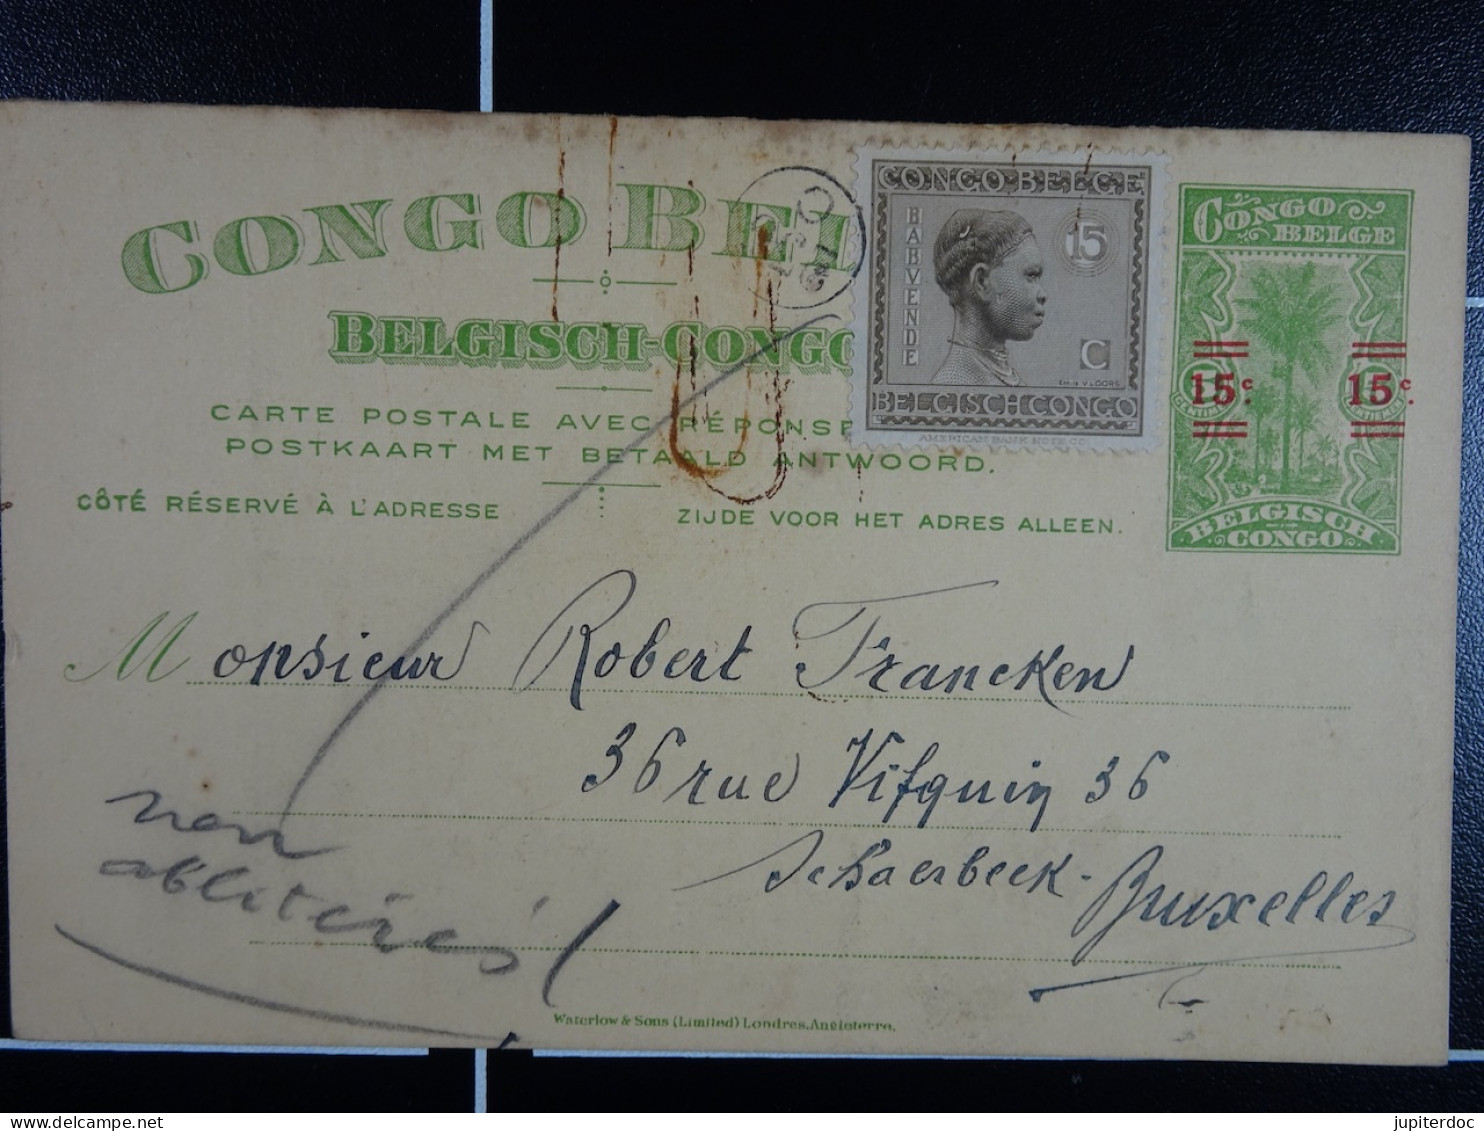 CONGO BEL
BELGISCH-CONGO
CARTE POSTALE AVEC RÉPONSE
POSTKAART MET BETAALD ANTWOORD.
CÔTÉ RÉSERVÉ À L'ADRESSE
ZIJDE VOOR HET ADRES ALLEEN.
CONGO BELGE
BABVENDE
15
C
EMILE VLOORS
BELGISCH CONGO
AMERICAN BANK NOTE CO
CONGO
BELGE
15c. 15c.
BELGISCH
CONGO
Monsieur Robert Francken
36 rue Vifquin 36
Schaerbeek-Bruxelles
non
oblitérés!
Waterlow & Sons (Limited) Londres, Angleterre.
jupiterdoc